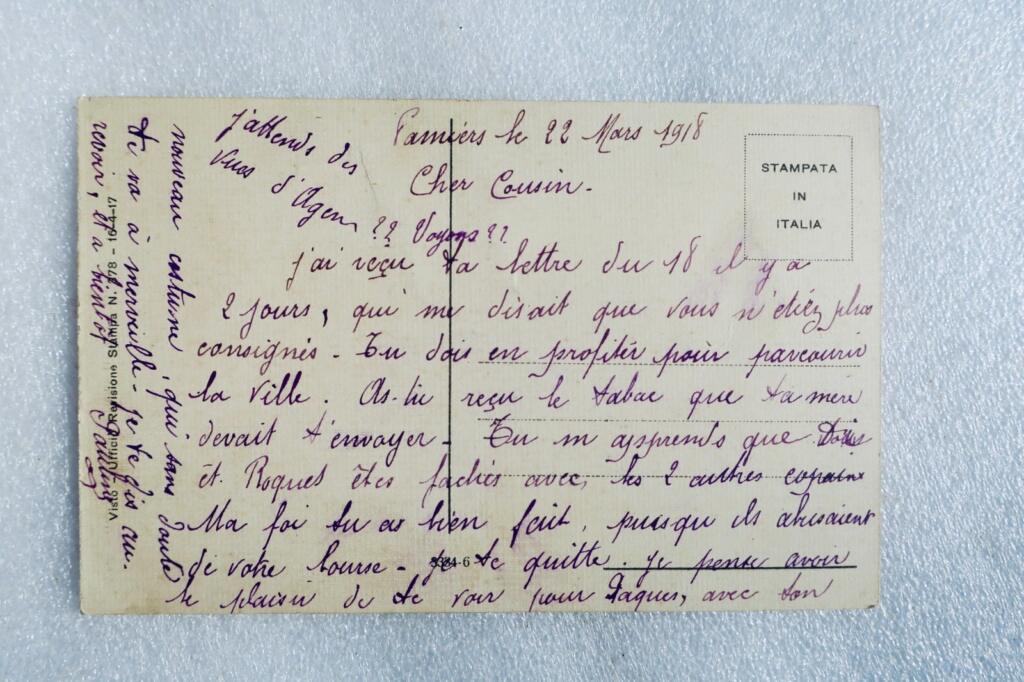 Pamiers le 22 Mars 1918
Cher Cousin.
j'ai reçu ta lettre du 18 il y a
2 jours, qui me disait que vous n'étiez plus
consignés - Tu dois en profiter pour parcourir
la ville. As-tu reçu le tabac que ta mère
devait t'envoyer - Tu m apprends que
et Roques êtes fachés avec, les 2 autres copains
Ma foi tu as bien fait, puisqu ils abusaient
de votre bourse - je te quitte. je pense avoir
le plaisir de te voir pour Paques, avec ton
nouveau costume qui sans doute
te va à merveille - je te dis au-
revoir, et a bientot
j'attends des
vues d'Agen
?? Voyons ??
STAMPATA
IN
ITALIA
Visto - Ufficio Revisione Stampa N. 278 - 16-4-17
3324-6